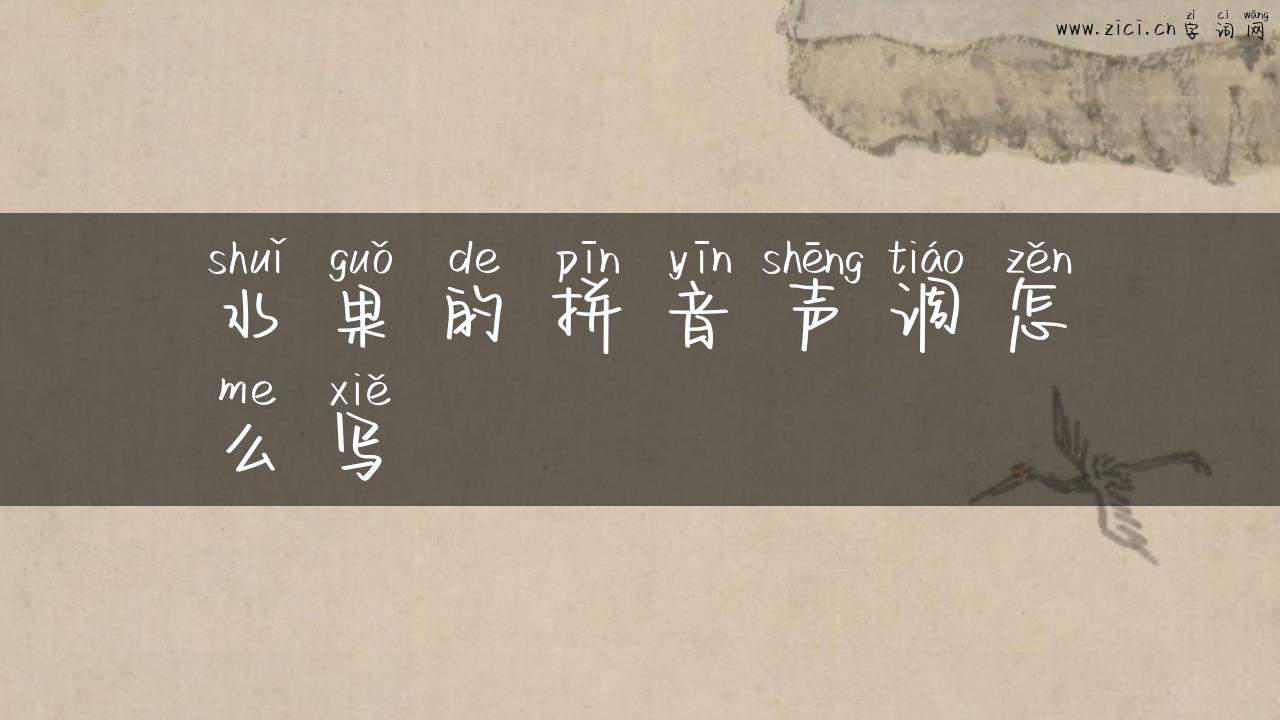 zì cí wǎng
www.zici.cn 字词网
shuǐ guǒ de pīn yīn shēng tiáo zěn
水果的拼音声调怎
me xiě
么写